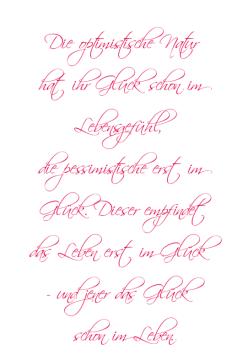 Die optimistische Natur
hat ihr Glück schon im
Lebensgefühl,
die pessimistische erst im
Glück. Dieser empfindet
das Leben erst im Glück
- und jener das Glück
schon im Leben